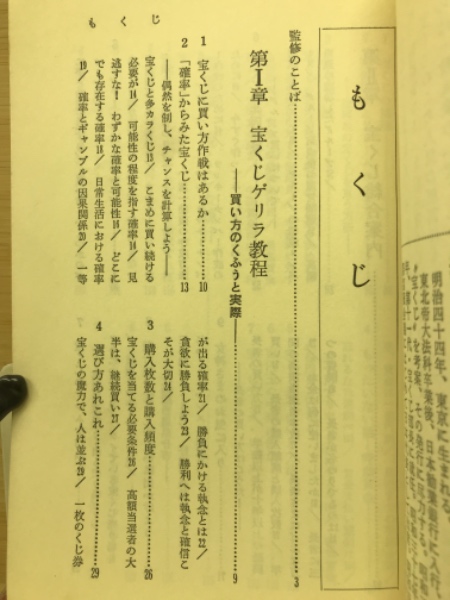 もくじ
もくじ
監修のことば………3
第Ⅰ章 宝くじゲリラ教程
――買い方のくふうと実際――………9
1 宝くじに買い方作戦はあるか………10
2 「確率」からみた宝くじ………13
――偶然を制し、チャンスを計算しよう――
宝くじと多カラくじ13/ こまめに買い続ける
必要が14/ 可能性の程度を指す確率14/ 見
逃すな! わずかな確率と可能性16/ どこに
でも存在する確率18/ 日常生活における確率
19/ 確率とギャンブルの因果関係20/ 一等
が出る確率21/ 勝負にかける執念とは22/
貪欲に勝負しよう23/ 勝利へは執念と確信こ
そが大切24/
3 購入枚数と購入頻度………26
宝くじを当てる必要条件26/ 高額当選者の大
半は、継続買い27/
4 選び方あれこれ………29
宝くじの魔力で、人は並ぶ29/ 一枚のくじ券
明治四十四年、東京に生まれる。
東北帝大法科卒業後、日本勧業銀行に入行。